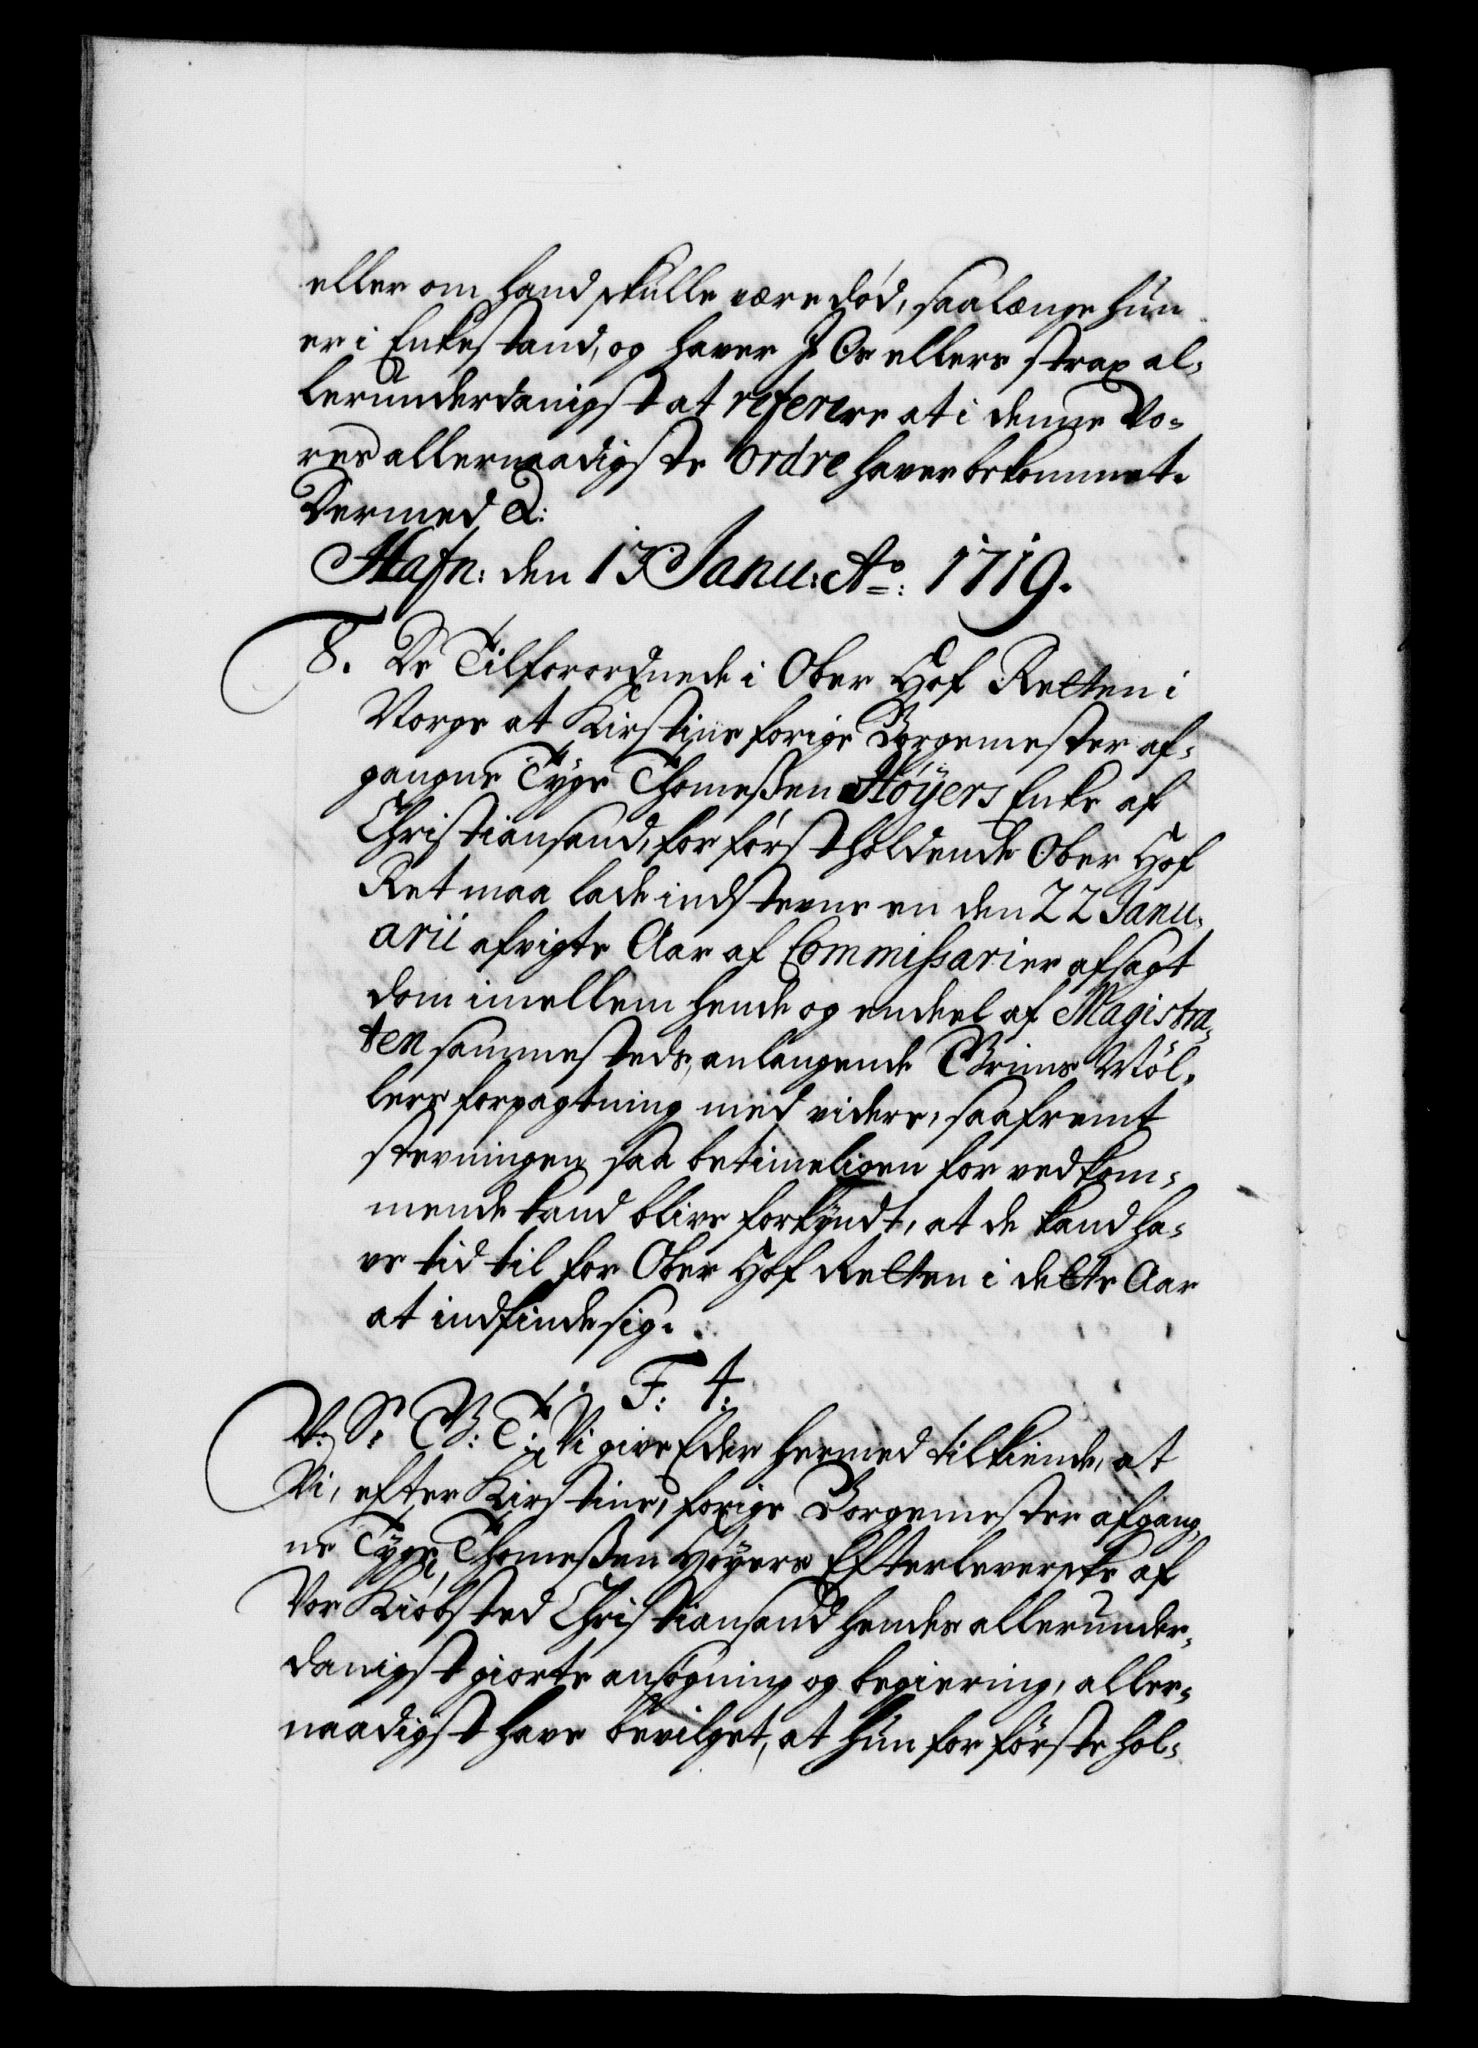 eller om hand skulle være død, saalænge hun
er i Enkestand, og haver I Os ellers strax al-
lerunderdanigst at referere at i denne Vo-
res allernaadigste ordre haver bekommet.
Dermed &:
Hafn: den 13 Janu: Ao: 1719.
8. De Tilforordnede i Ober Hof Retten i
Norge at Kirstine forige Borgemester af-
gangne Tyge Thomeßen Høÿers Enke af
Christiansand, for førstholdende Ober Hof
Ret maa lade indstevne en den 22 Janu-
arii afvigte Aar af Commissarier afsagt
dom imellem hende og endeel af Magistra-
ten sammesteds, anlangende Grims Møl-
lers forpagtning med videre, saafremt
stevningen saa betimeligen for vedkom-
mende kand blive forkyndt, at de kand ha-
ve tid til for Ober Hof Retten i dette Aar
at indfinde sig.
F: 4:
V: S: G: T: Vi give Eder hermed tilkiende, at
Vi, efter Kirstine, forige Borgemester afgang-
ne Tyge Thomeßen Høyers Efterleverske af
Vor Kiøbsted Christiansand hendes allerunder-
danigst giorte ansøgning og begiering, aller-
naadigst have bevilget, at hun for første hol-